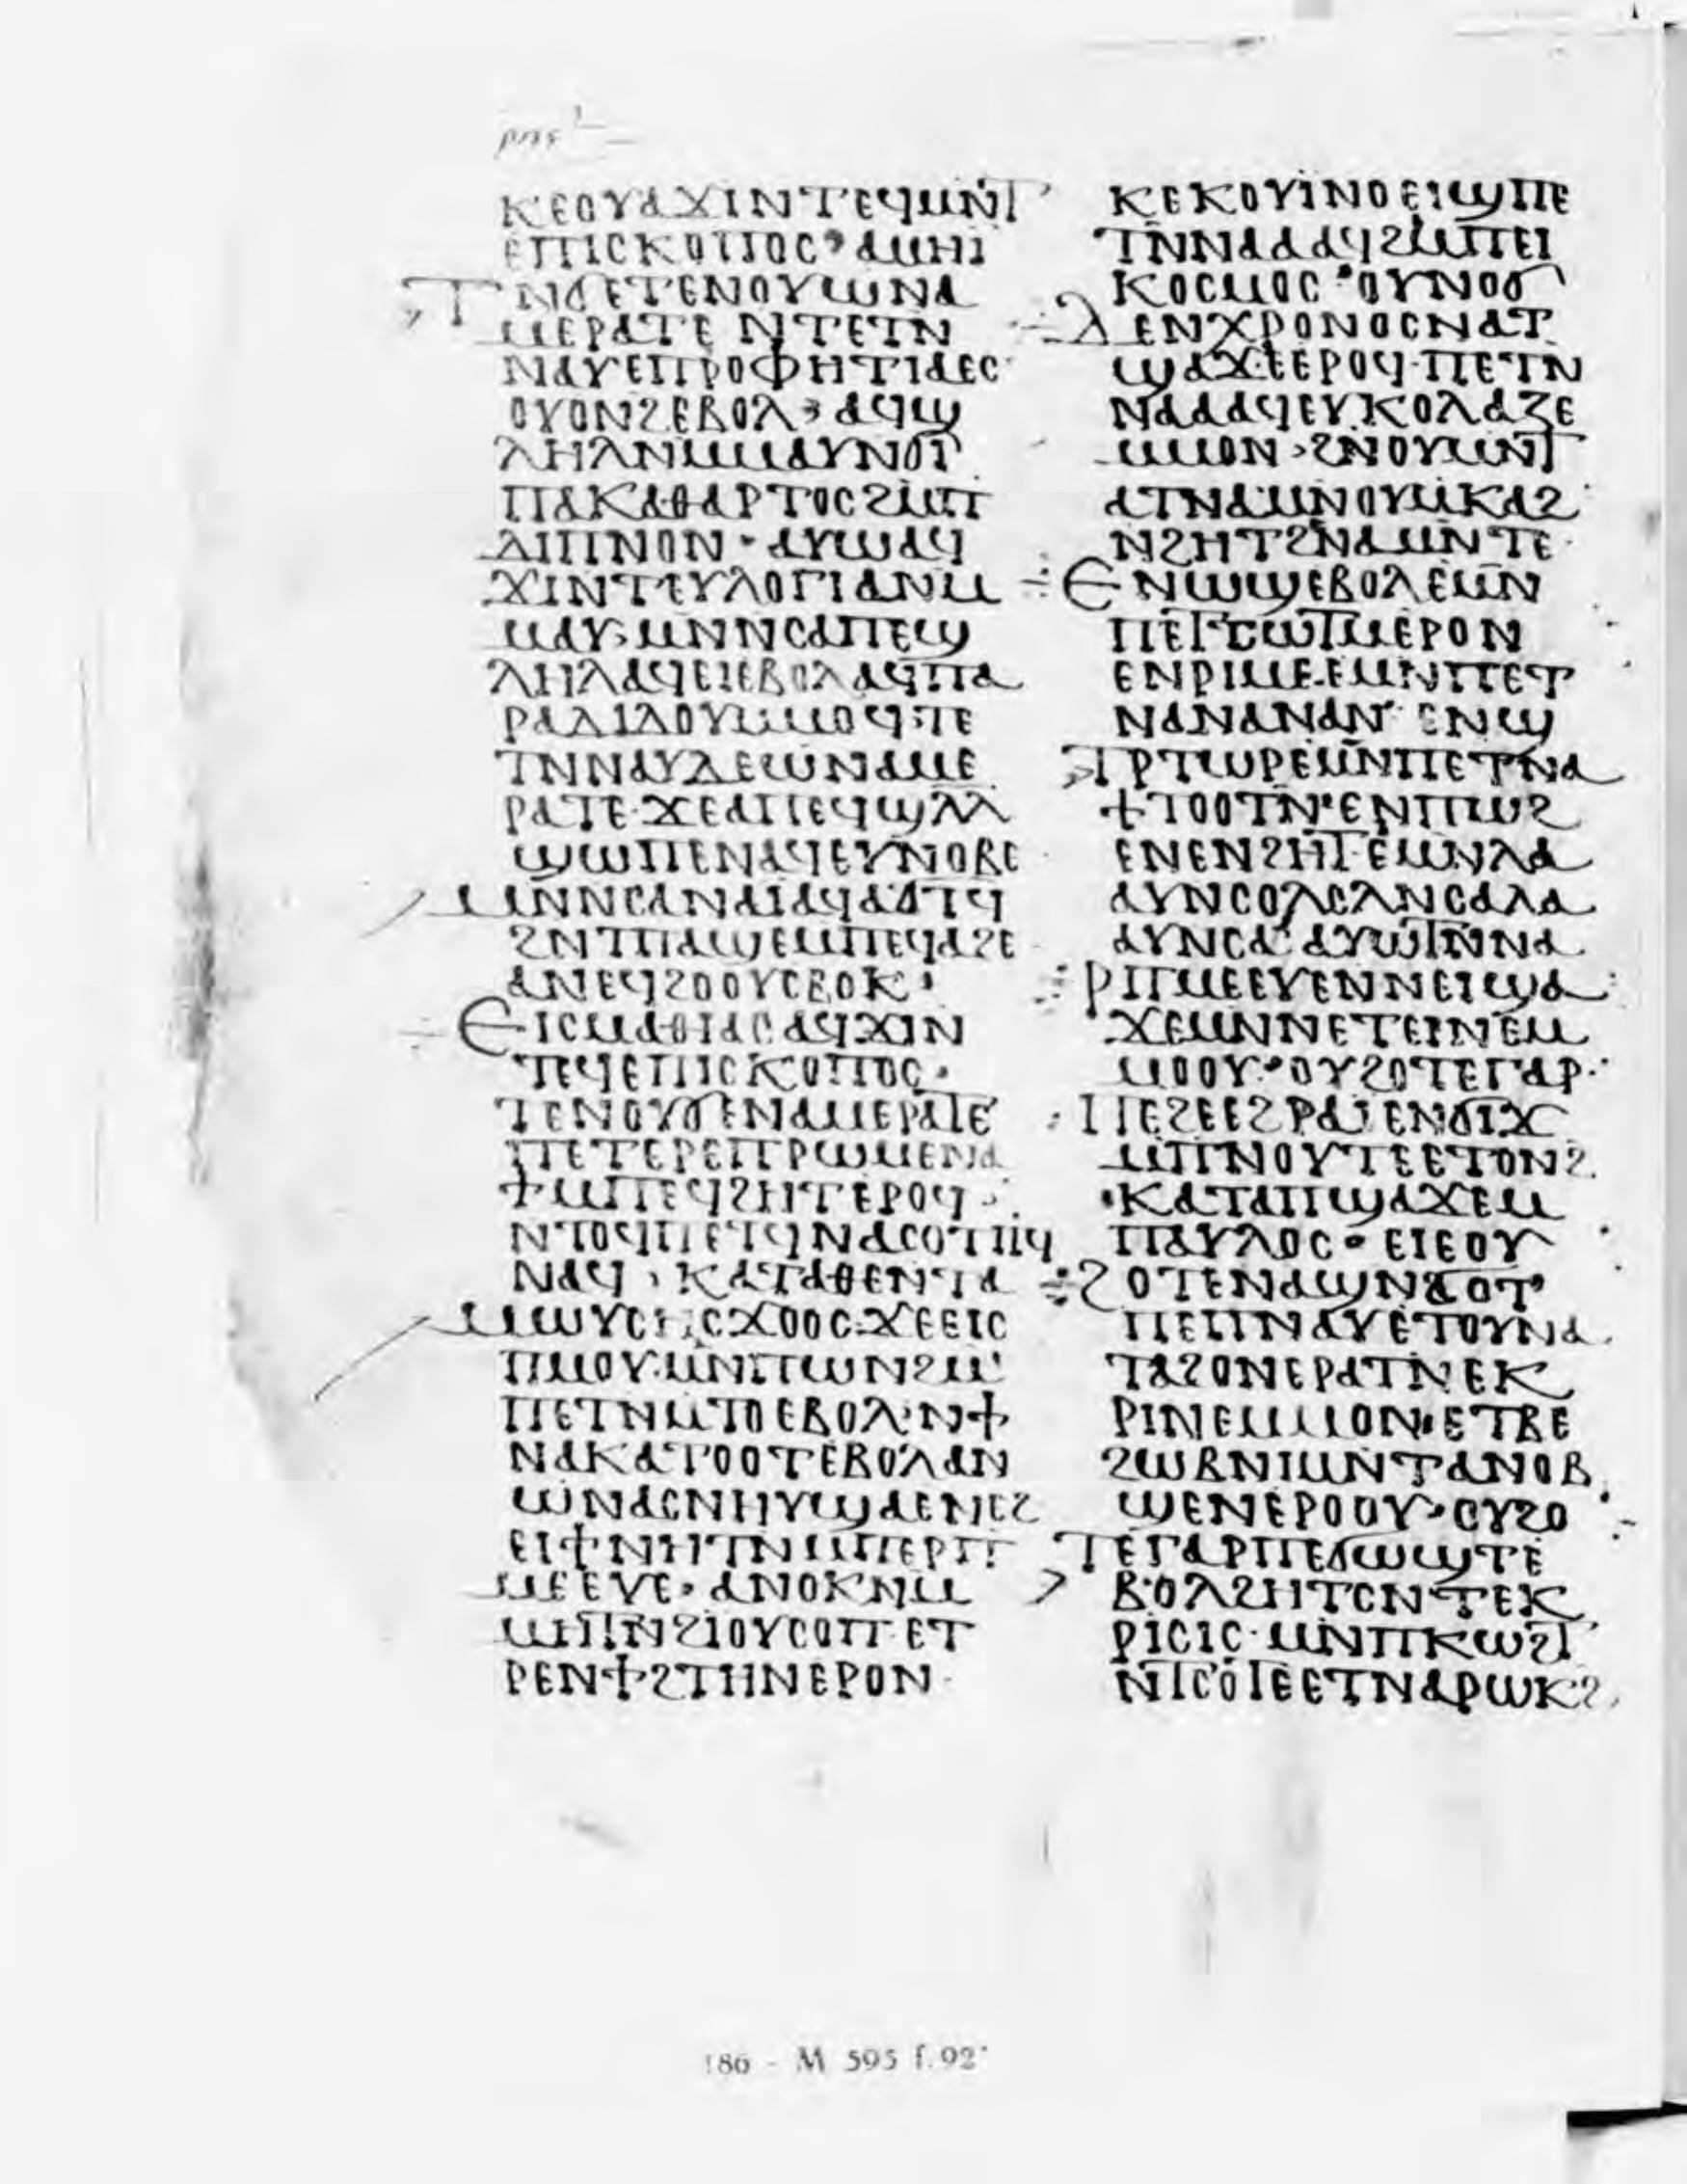 ⲕⲉⲟⲩⲁϫⲓⲛⲧⲉϥⲙⲛⲧ
ⲉⲡⲓⲥⲕⲟⲡⲟⲥ ⲁⲙⲏⲓ
ⲧⲛϭⲉⲧⲉⲛⲟⲩⲱⲛⲁ
ⲙⲉⲣⲁⲧⲉ ⲛⲧⲉⲧⲛ
ⲛⲁⲩⲉⲡⲣⲟⲫⲏⲧⲓⲁⲉⲥ
ⲟⲩⲟⲛϩⲉⲃⲟⲗ ⲁϥϣ
ⲗⲏⲗⲛⲙⲙⲁⲩⲛϭⲓ
ⲡⲁⲕⲁⲑⲁⲣⲧⲟⲥϩⲙⲡ
ⲇⲓⲡⲛⲟⲛ · ⲁⲩⲱⲁϥ
ϫⲓⲛⲧⲉⲩⲗⲟⲅⲓⲁⲛⲙ
ⲙⲁⲩ ⲙⲛⲛⲥⲁⲡⲉϣ
ⲗⲏⲗⲁϥⲉⲓⲉⲃⲟⲗⲁϥⲡⲁ
ⲣⲁⲇⲓⲇⲟⲩⲙⲙⲟϥ ⲡⲉ
ⲧⲛⲛⲁⲩⲇⲉⲱⲛⲁⲙⲉ
ⲣⲁⲧⲉ·ϫⲉⲁⲡⲉϥϣⲗⲗ
ϣⲱⲡⲉⲛⲁϥⲉⲩⲛⲟⲃⲉ
ⲙⲛⲛⲥⲁⲛⲁⲓⲁϥⲁϭⲧϥ
ϩⲛⲧⲡⲁϣⲉⲙⲡⲉϥⲁϩⲉ
ⲁⲛⲉϥϩⲟⲟⲩⲥⲃⲟⲕ·
ⲉⲓⲥⲙⲁⲑⲓⲁⲥⲁϥϫⲓⲛ
ⲧⲉϥⲉⲡⲓⲥⲕⲟⲡⲟⲥ·
ⲧⲉⲛⲟⲩϭⲉⲛⲁⲙⲉⲣⲁⲧⲉ
ⲡⲉⲧⲉⲣⲉⲡⲣⲱⲙⲉⲛⲁ
ϯⲙⲡⲉϥϩⲏⲧⲉⲣⲟϥ
ⲛⲧⲟϥⲡⲉⲧϥⲛⲁⲥⲟⲧⲡϥ
ⲛⲁϥ · ⲕⲁⲧⲁⲑⲉⲛⲧⲁ
ⲙⲱⲩⲥⲏⲥϫⲟⲟⲥ·ϫⲉⲉⲓⲥ
ⲡⲙⲟⲩ·ⲙⲛⲡⲱⲛϩⲙ
ⲡⲉⲧⲛⲙⲧⲟⲉⲃⲟⲗ·ⲛϯ
ⲛⲁⲕⲁⲧⲟⲟⲧⲉⲃⲟⲗⲁⲛ
ⲱⲛⲁⲥⲛⲏⲩϣⲁⲉⲛⲉϩ
ⲉⲓϯⲛⲏⲧⲛⲙⲡⲉⲣⲡ
ⲙⲉⲉⲩⲉ· ⲁⲛⲟⲕⲛⲙ
ⲙⲏⲧⲛϩⲓⲟⲩⲥⲟⲡ·ⲉⲧ
ⲣⲉⲛϯϩⲧⲏⲛⲉⲣⲟⲛ·
ⲕⲉⲕⲟⲩⲓⲛⲟⲉⲓϣⲡⲉ
ⲧⲛⲛⲁⲁⲁϥϩⲙⲡⲉⲓ
ⲕⲟⲥⲙⲟⲥ·ⲟⲩⲛⲟϭ
ⲇⲉⲛⲭⲣⲟⲛⲟⲥⲛⲁⲧ
ϣⲁϫⲉⲉⲣⲟϥ·ⲡⲉⲧⲛ
ⲛⲁⲁⲁϥⲉⲩⲕⲟⲗⲁⲍⲉ
ⲙⲙⲟⲛ ϩⲛⲟⲩⲙⲛⲧ
ⲁⲧⲛⲁⲙⲛⲟⲩⲙⲕⲁϩ
ⲛϩⲏⲧϩⲛⲁⲙⲛⲧⲉ·
ⲉⲛⲱϣⲉⲃⲟⲗⲉⲙⲛ
ⲡⲉⲧⲥⲱⲧⲙⲉⲣⲟⲛ
ⲉⲛⲣⲓⲙⲉ·ⲉⲙⲛⲡⲉⲧ
ⲛⲁⲛⲁⲛⲁⲛ ⲉⲛϣ
ⲧⲣⲧⲱⲣⲉⲙⲛⲡⲉⲧⲛⲁ
ϯⲧⲟⲟⲧⲛ·ⲉⲛⲡⲱϩ
ⲉⲛⲉⲛϩⲏⲧ·ⲉⲙⲛⲗⲁ
ⲁⲩⲛⲥⲟⲗⲥⲗⲛⲥⲁⲗⲁ
ⲁⲩⲛⲥⲁ ⲁⲩⲱⲧⲛⲛⲁ
ⲣⲡⲙⲉⲉⲩⲉⲛⲛⲉⲓϣⲁ
ϫⲉⲙⲛⲛⲉⲧⲉⲓⲛⲉⲙ
ⲙⲟⲟⲩ·ⲟⲩϩⲟⲧⲉⲅⲁⲣ·
ⲡⲉϩⲉⲉϩⲣⲁⲓⲉⲛϭⲓϫ
ⲙⲡⲛⲟⲩⲧⲉⲉⲧⲟⲛϩ
·ⲕⲁⲧⲁⲡϣⲁϫⲉⲙ
ⲡⲁⲩⲗⲟⲥ · ⲉⲓⲉⲟⲩ
ϩⲟⲧⲉⲛⲁϣⲛϭⲟⲧ
ⲡⲉⲧⲛⲁⲩⲉⲧⲟⲩⲛⲁ
ⲧⲁϩⲟⲛⲉⲣⲁⲧⲛⲉⲕ
ⲣⲓⲛⲉⲙⲙⲟⲛ·ⲉⲧⲃⲉ
ϩⲱⲃⲛⲓⲙⲛⲧⲁⲛⲟⲃ
ϣⲉⲛⲉⲣⲟⲟⲩ·ⲟⲩϩⲟ
ⲧⲉⲅⲁⲣⲡⲉϭⲱϣⲧⲉ
ⲃⲟⲗϩⲏⲧⲥⲛⲧⲉⲕ
ⲣⲓⲥⲓⲥ·ⲙⲛⲡⲕⲱϩⲧ
ⲛⲧⲥⲟⲧⲉⲉⲧⲛⲁⲣⲱⲕϩ
186 - M 595 f.92